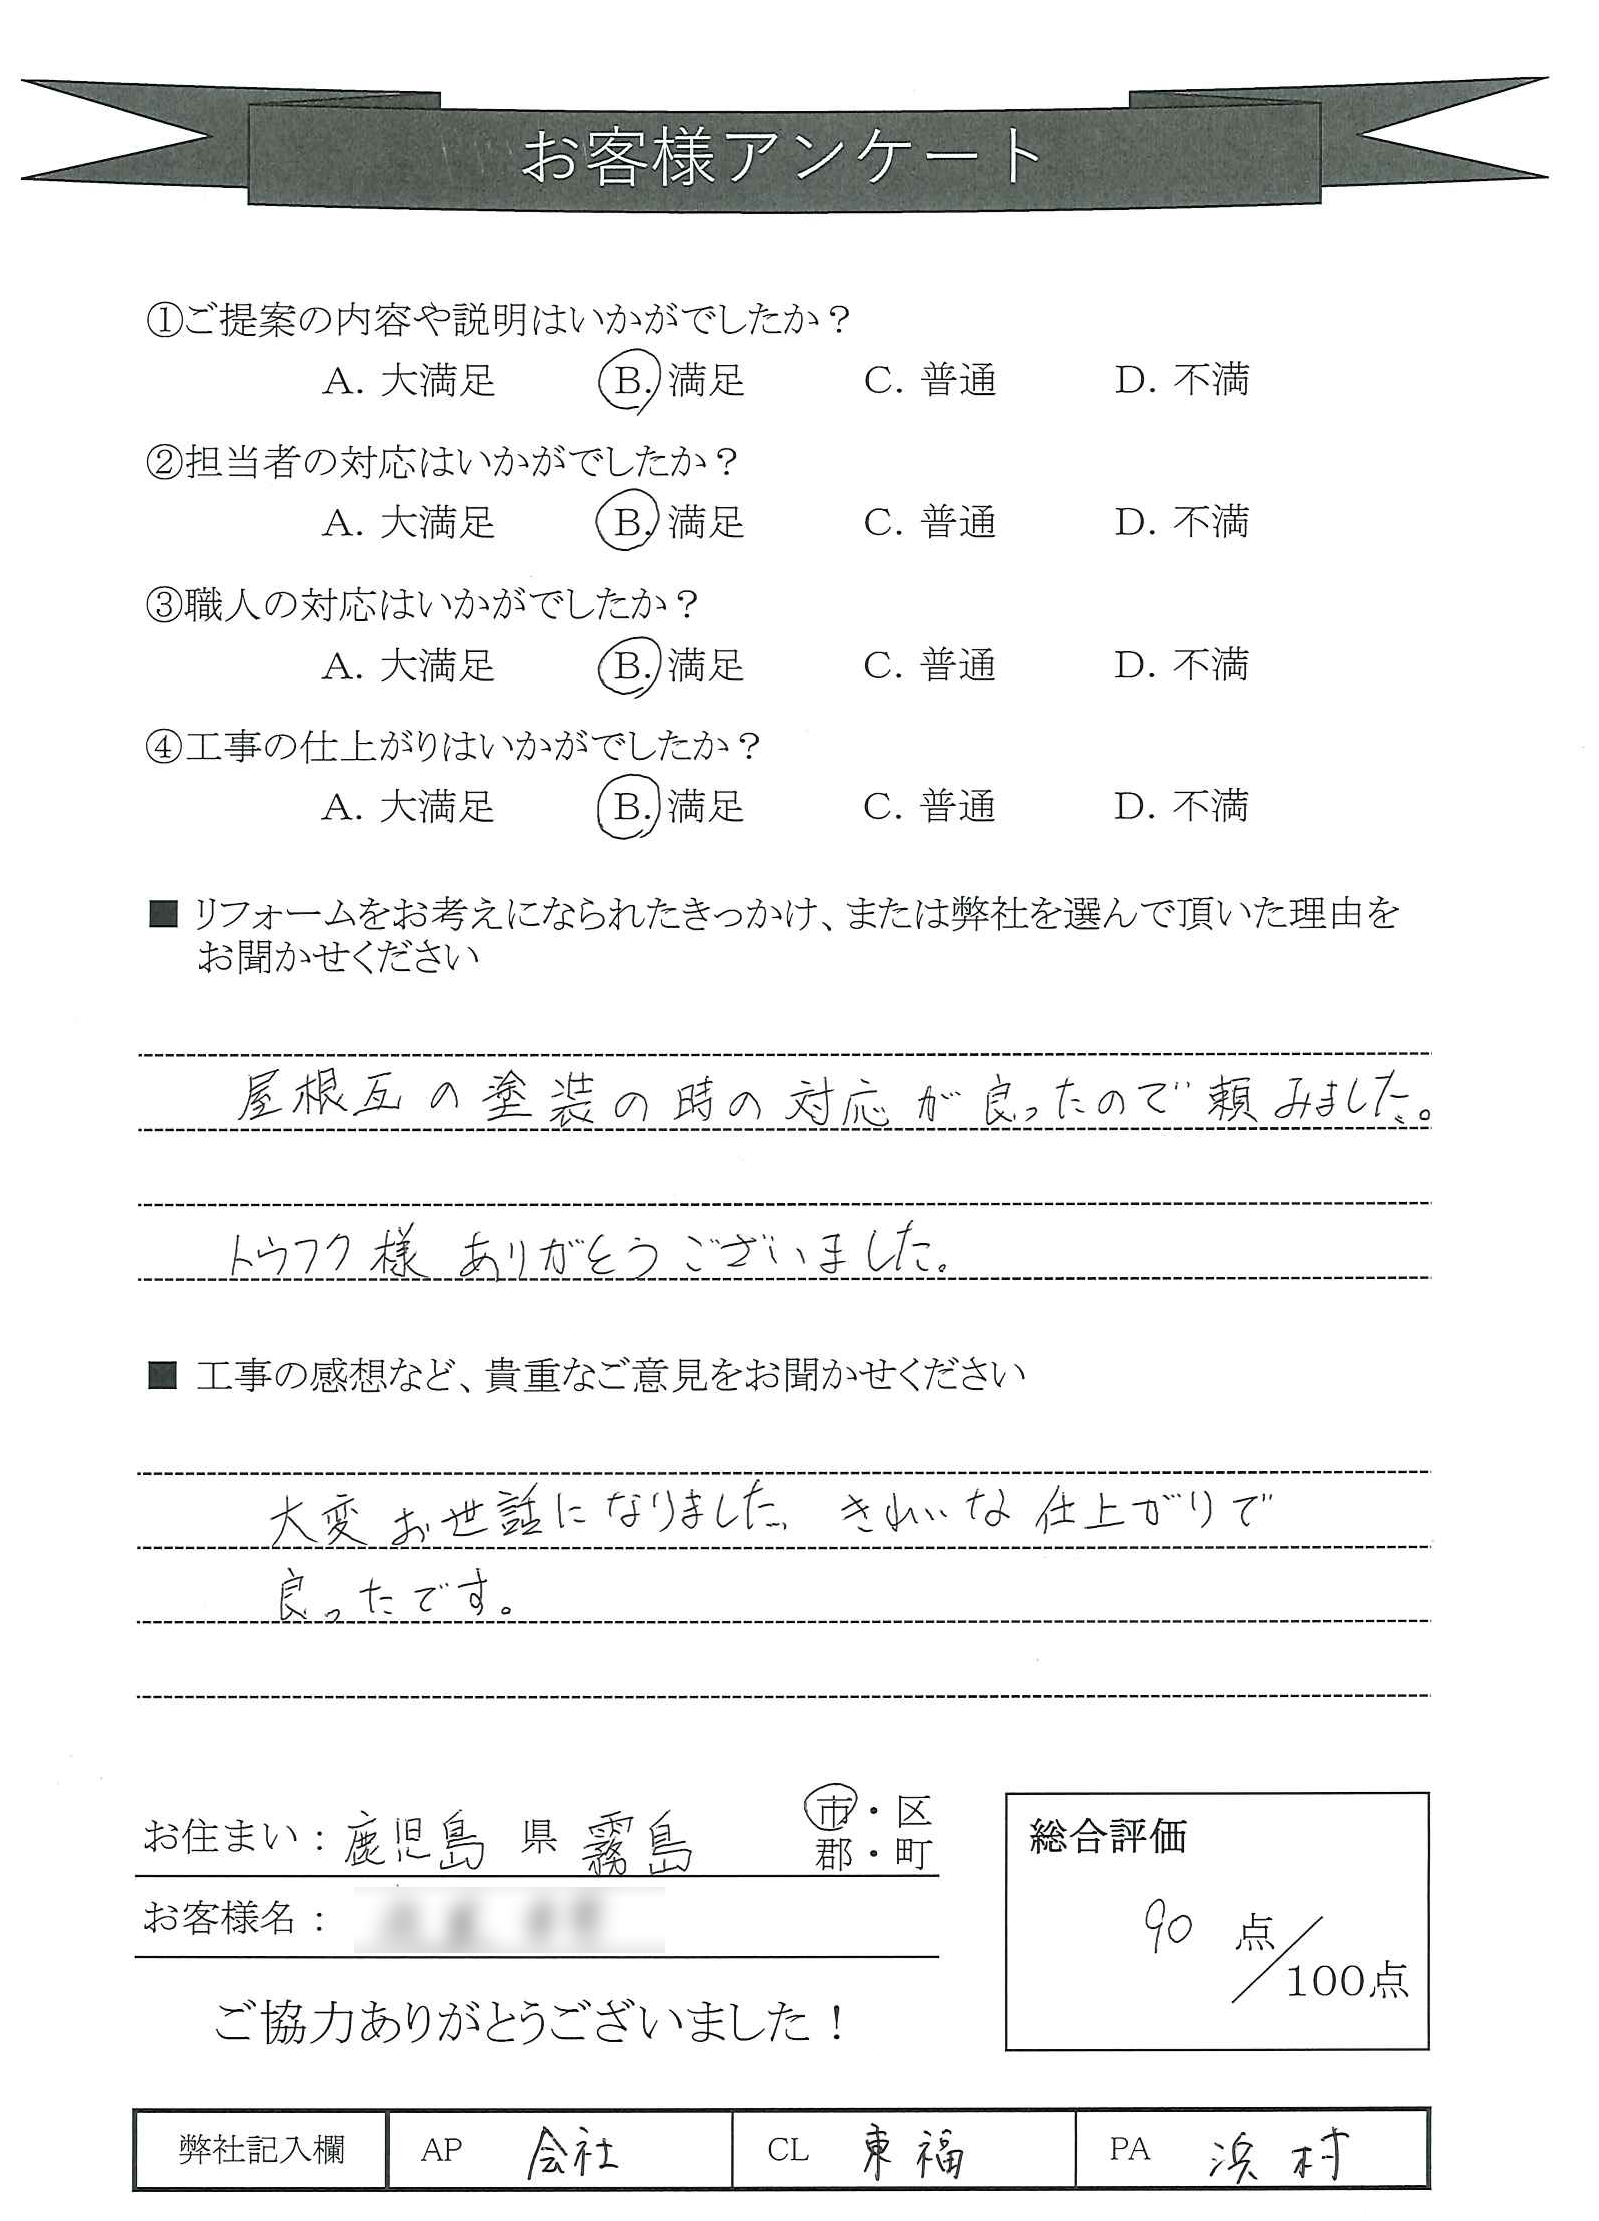 お客様アンケート
①ご提案の内容や説明はいかがでしたか？
A. 大満足 B. 満足 C. 普通 D. 不満
②担当者の対応はいかがでしたか？
A. 大満足 B. 満足 C. 普通 D. 不満
③職人の対応はいかがでしたか？
A. 大満足 B. 満足 C. 普通 D. 不満
④工事の仕上がりはいかがでしたか？
A. 大満足 B. 満足 C. 普通 D. 不満
■ リフォームをお考えになられたきっかけ、または弊社を選んで頂いた理由を
お聞かせください
屋根瓦の塗装の時の対応が良ったので頼みました。
トウフク様 ありがとうございました。
■ 工事の感想など、貴重なご意見をお聞かせください
大変お世話になりました、きれいな仕上がりで
良ったです。
お住まい：鹿児島 県 霧島 市・区
郡・町
お客様名：
ご協力ありがとうございました！
総合評価
90 点／100点
弊社記入欄 AP 会社 CL 東福 PA 浜村